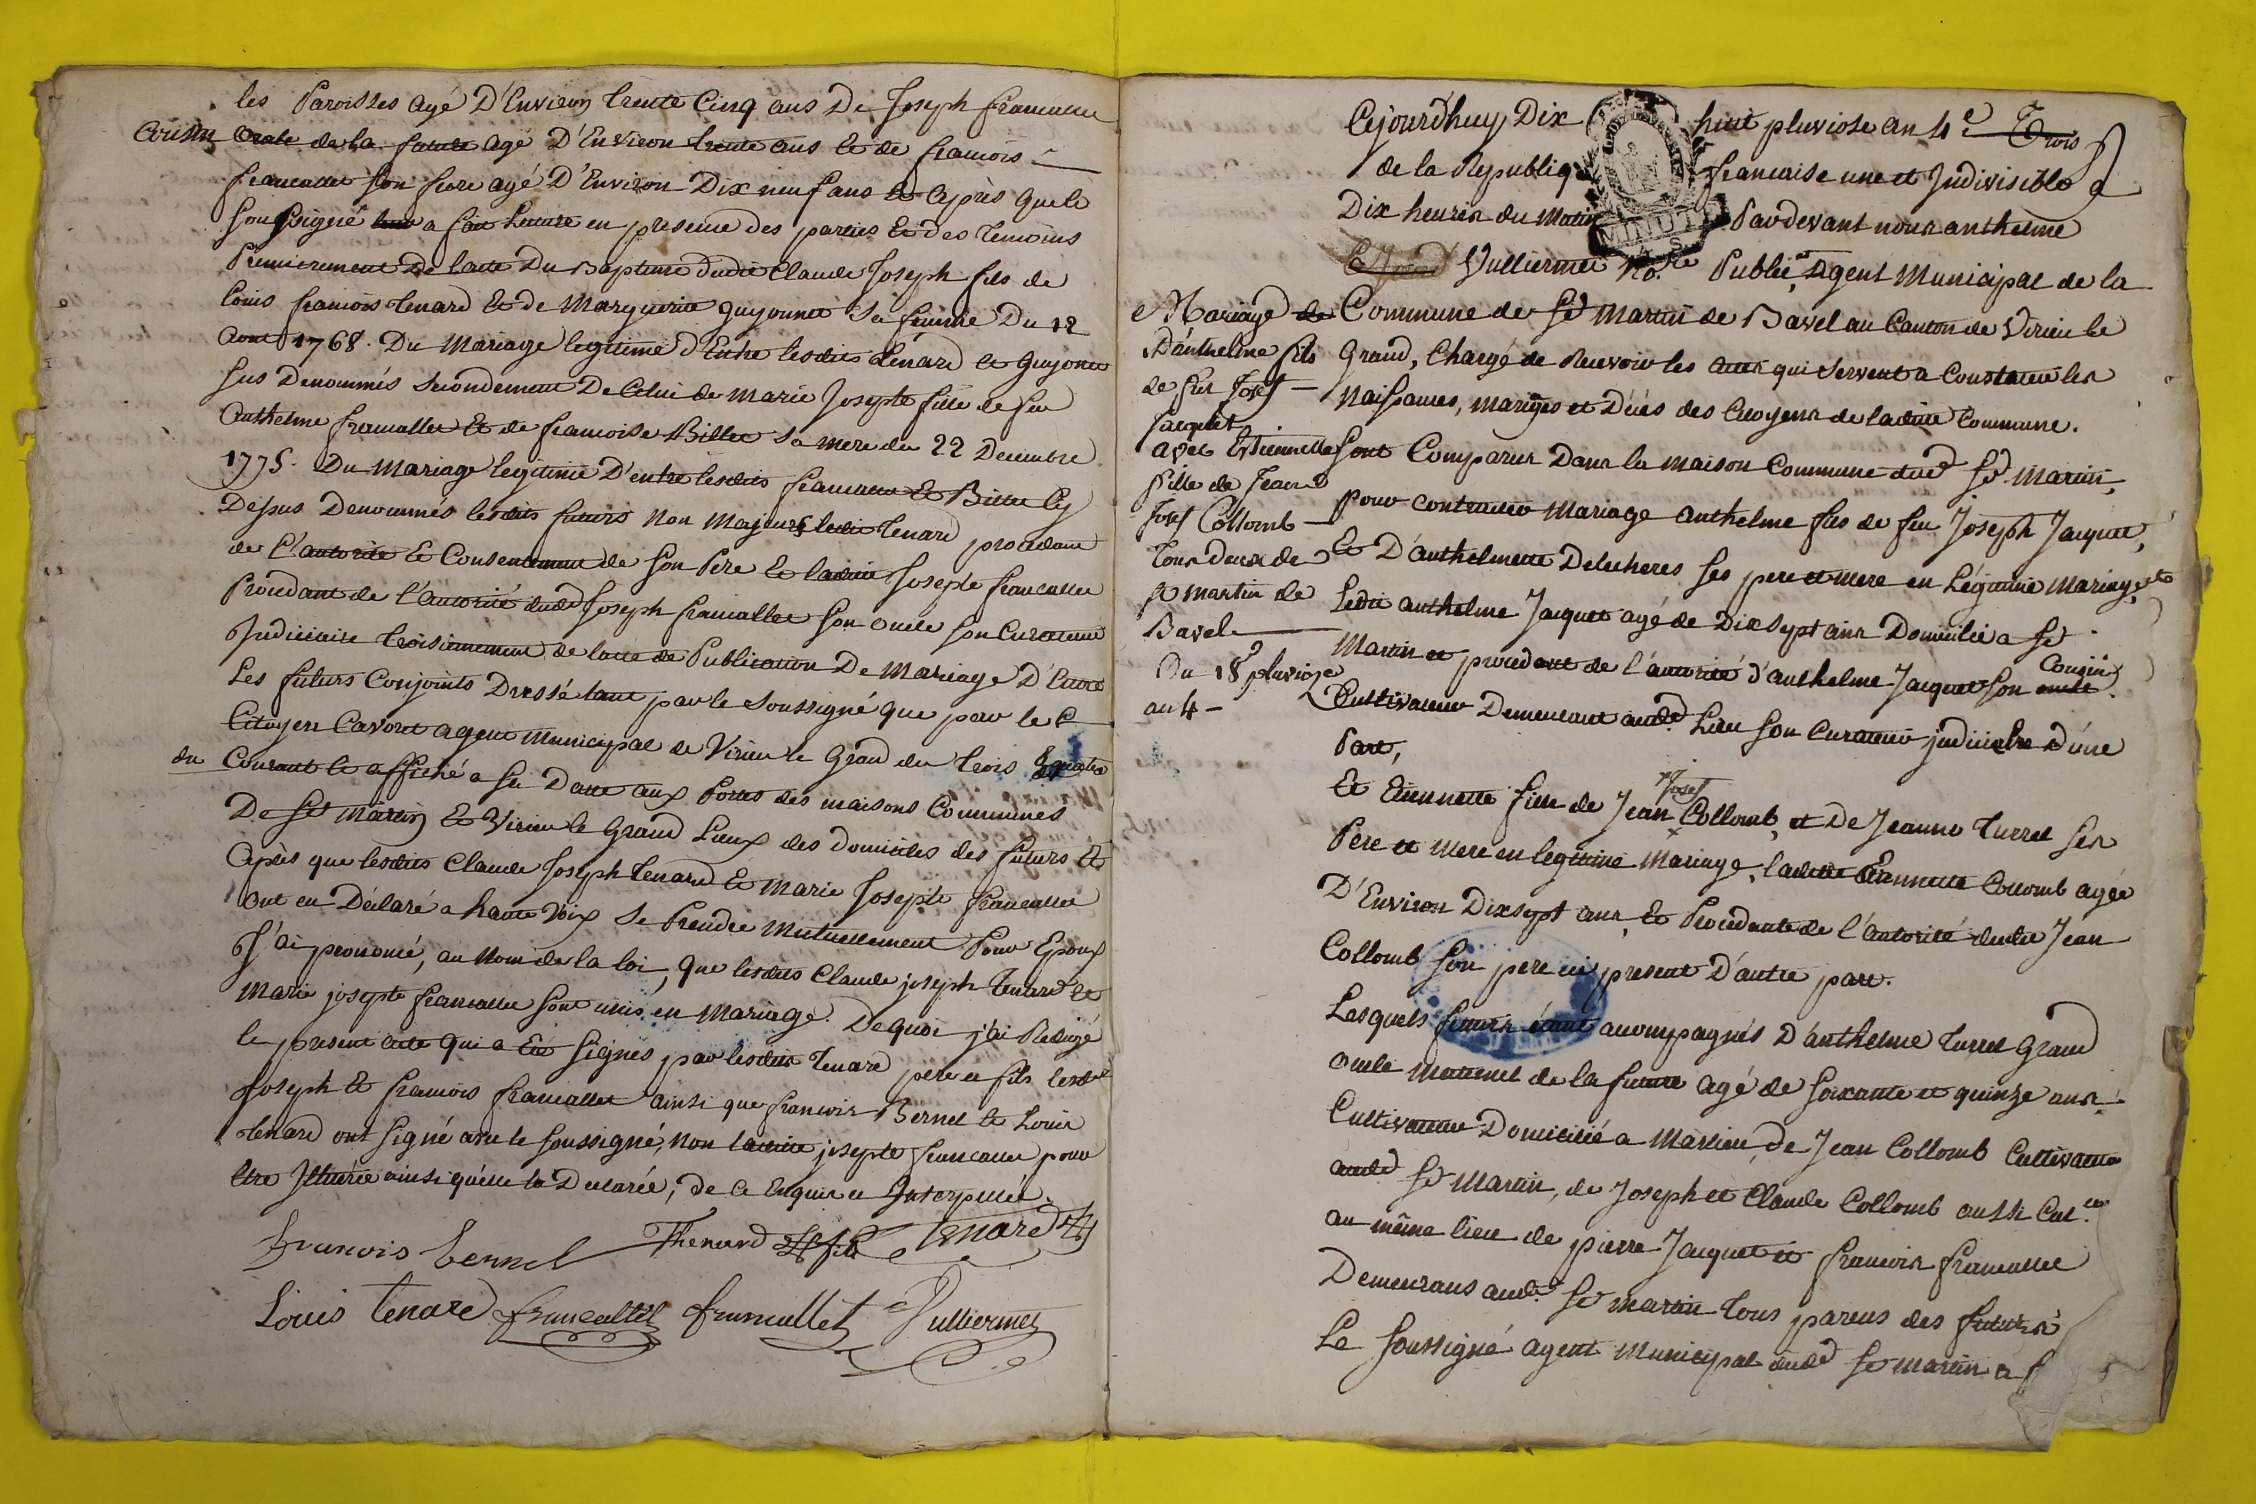 les Paroisses agé D'Environ trente Cinq ans De Joseph francallet
Cousin oncle de la future agé D'Environ trente ans et de francois
francallet son frere agé D'Environ Dix neuf ans et Après que le
soussigné a fait lecture en presence des parties Et des temoins
Premierement De lacte Du Bapteme dudit Claude Joseph fils de
Louis francois tenard Et de Marguerite guyonnet sa femme Du 12
Aout 1768. Du Mariage legitime d'Entre lesdits tenard et guyonet
sus Denommés secondement De Celui de Marie Josepte fille de feu
Anthelme francallet Et de francoise Billet sa mere du 22 Decembre
1775. Du Mariage legitime D'entre lesdits francallet Et Billet cy
Dessus Denommés lesdits futurs non Majeurs ledit tenard procedant
de l'autorité Et Consentement de son Pere Et ladite Josepte francallet
Procedant de l'autorité dudt Joseph francallet son oncle son Curateur
Judiciaire troisiemement de lacte de Publication De Mariage D'Entre
Les futurs Conjoints Dressé tant par le soussigné que par le C
Citoyen Cavoret agent Municipal de Virieu le Grand du trois
du Courant Et affiché a sa Datte aux Portes des maisons Communes
De St Martin Et Virieu le Grand Lieux des domiciles des futurs Et
Après que lesdits Claude Joseph tenard Et Marie Josepte francallet
ont eu Déclaré a haute Voix se Prendre Mutuellement Pour Epoux
J'ai prononcé, au Nom de la loi, que lesdits Claude joseph tenard et
Marie josepte francallet sont unis en Mariage. De quoi j'ai Redigé
le present acte qui a Eté signés par lesdits tenard pere et fils lesdts
Joseph Et francois francallet ainsi que francois Bernel et Louis
tenard ont signé avec le soussigné, non ladite josepte francallet pour
Etre Illiterée ainsi qu'elle la Declarée, de ce Enquise et Interpellée.
francois bernel Thenard fils Tenard
Louis tenard francallet francallet Vulliermet
Cejourd'huy Dix huit pluviose an 4e Trois
de la Republique francaise une et Indivisible a
Dix heures du Matin Pardevant nous anthelme
MINUTE
Vulliermet No.re Public, Agent Municipal de la
Commune de St Martin de Bavel au Canton de Virieu le
Grand, Chargé de Recevoir les actes qui servent a Constater les
Naissances, mariages et Décès des Citoyens de ladite Commune.
Mariage de
D'anthelme fils
de feu Josef
jacquet
avec Etiennette
fille de Jean
Josef Collomb
tous deux de
St martin de
Bavel
Du 18 pluviose
an 4
Sont Comparus Dans la maison Commune dudt St Martin,
pour contracter Mariage anthelme fils de feu Joseph Jacquet,
Et D'anthelmette Delecheres ses pere et mere en Légitime Mariage, et
Ledit anthelme Jacquet agé de Dix sept ans Domicilié a St
Martin et procedant de l'autorité d'anthelme Jacquet son oncle Cousin
Cultivateur Demeurant audt Lieu son Curateur judiciaire D'une
Part,
Et Etiennette fille de Jean Josef Collomb, et De Jeanne Turrel ses
Pere et mere en legitime Mariage, ladite Etiennette Collomb agée
D'Environ Dix sept ans, Et Procedante de l'autorité dudit Jean
Collomb son pere ici present D'autre part.
Lesquels futurs étant accompagnés D'anthelme Turrel Grand
oncle maternel de la future agé de soixante et quinze ans
Cultivateur Domicilié a Marlieu, de Jean Collomb Cultivateur
audt St Martin, de Joseph et Claude Collomb aussi Cul.rs
au même lieu de pierre Jacquet et francois francallet
Demeurans audt St Martin tous parens des futurs
Le soussigné agent Municipal dudt St martin a